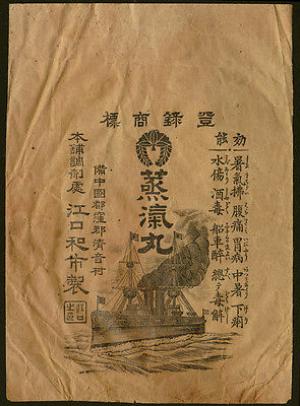 登録商標
効能
暑気拂 腹痛 胃病 中暑 下痢
水傷 酒毒 船車醉 總テ毒解
蒸氣丸
備中國都窪郡清音村
本舗調剤處 江口和市製